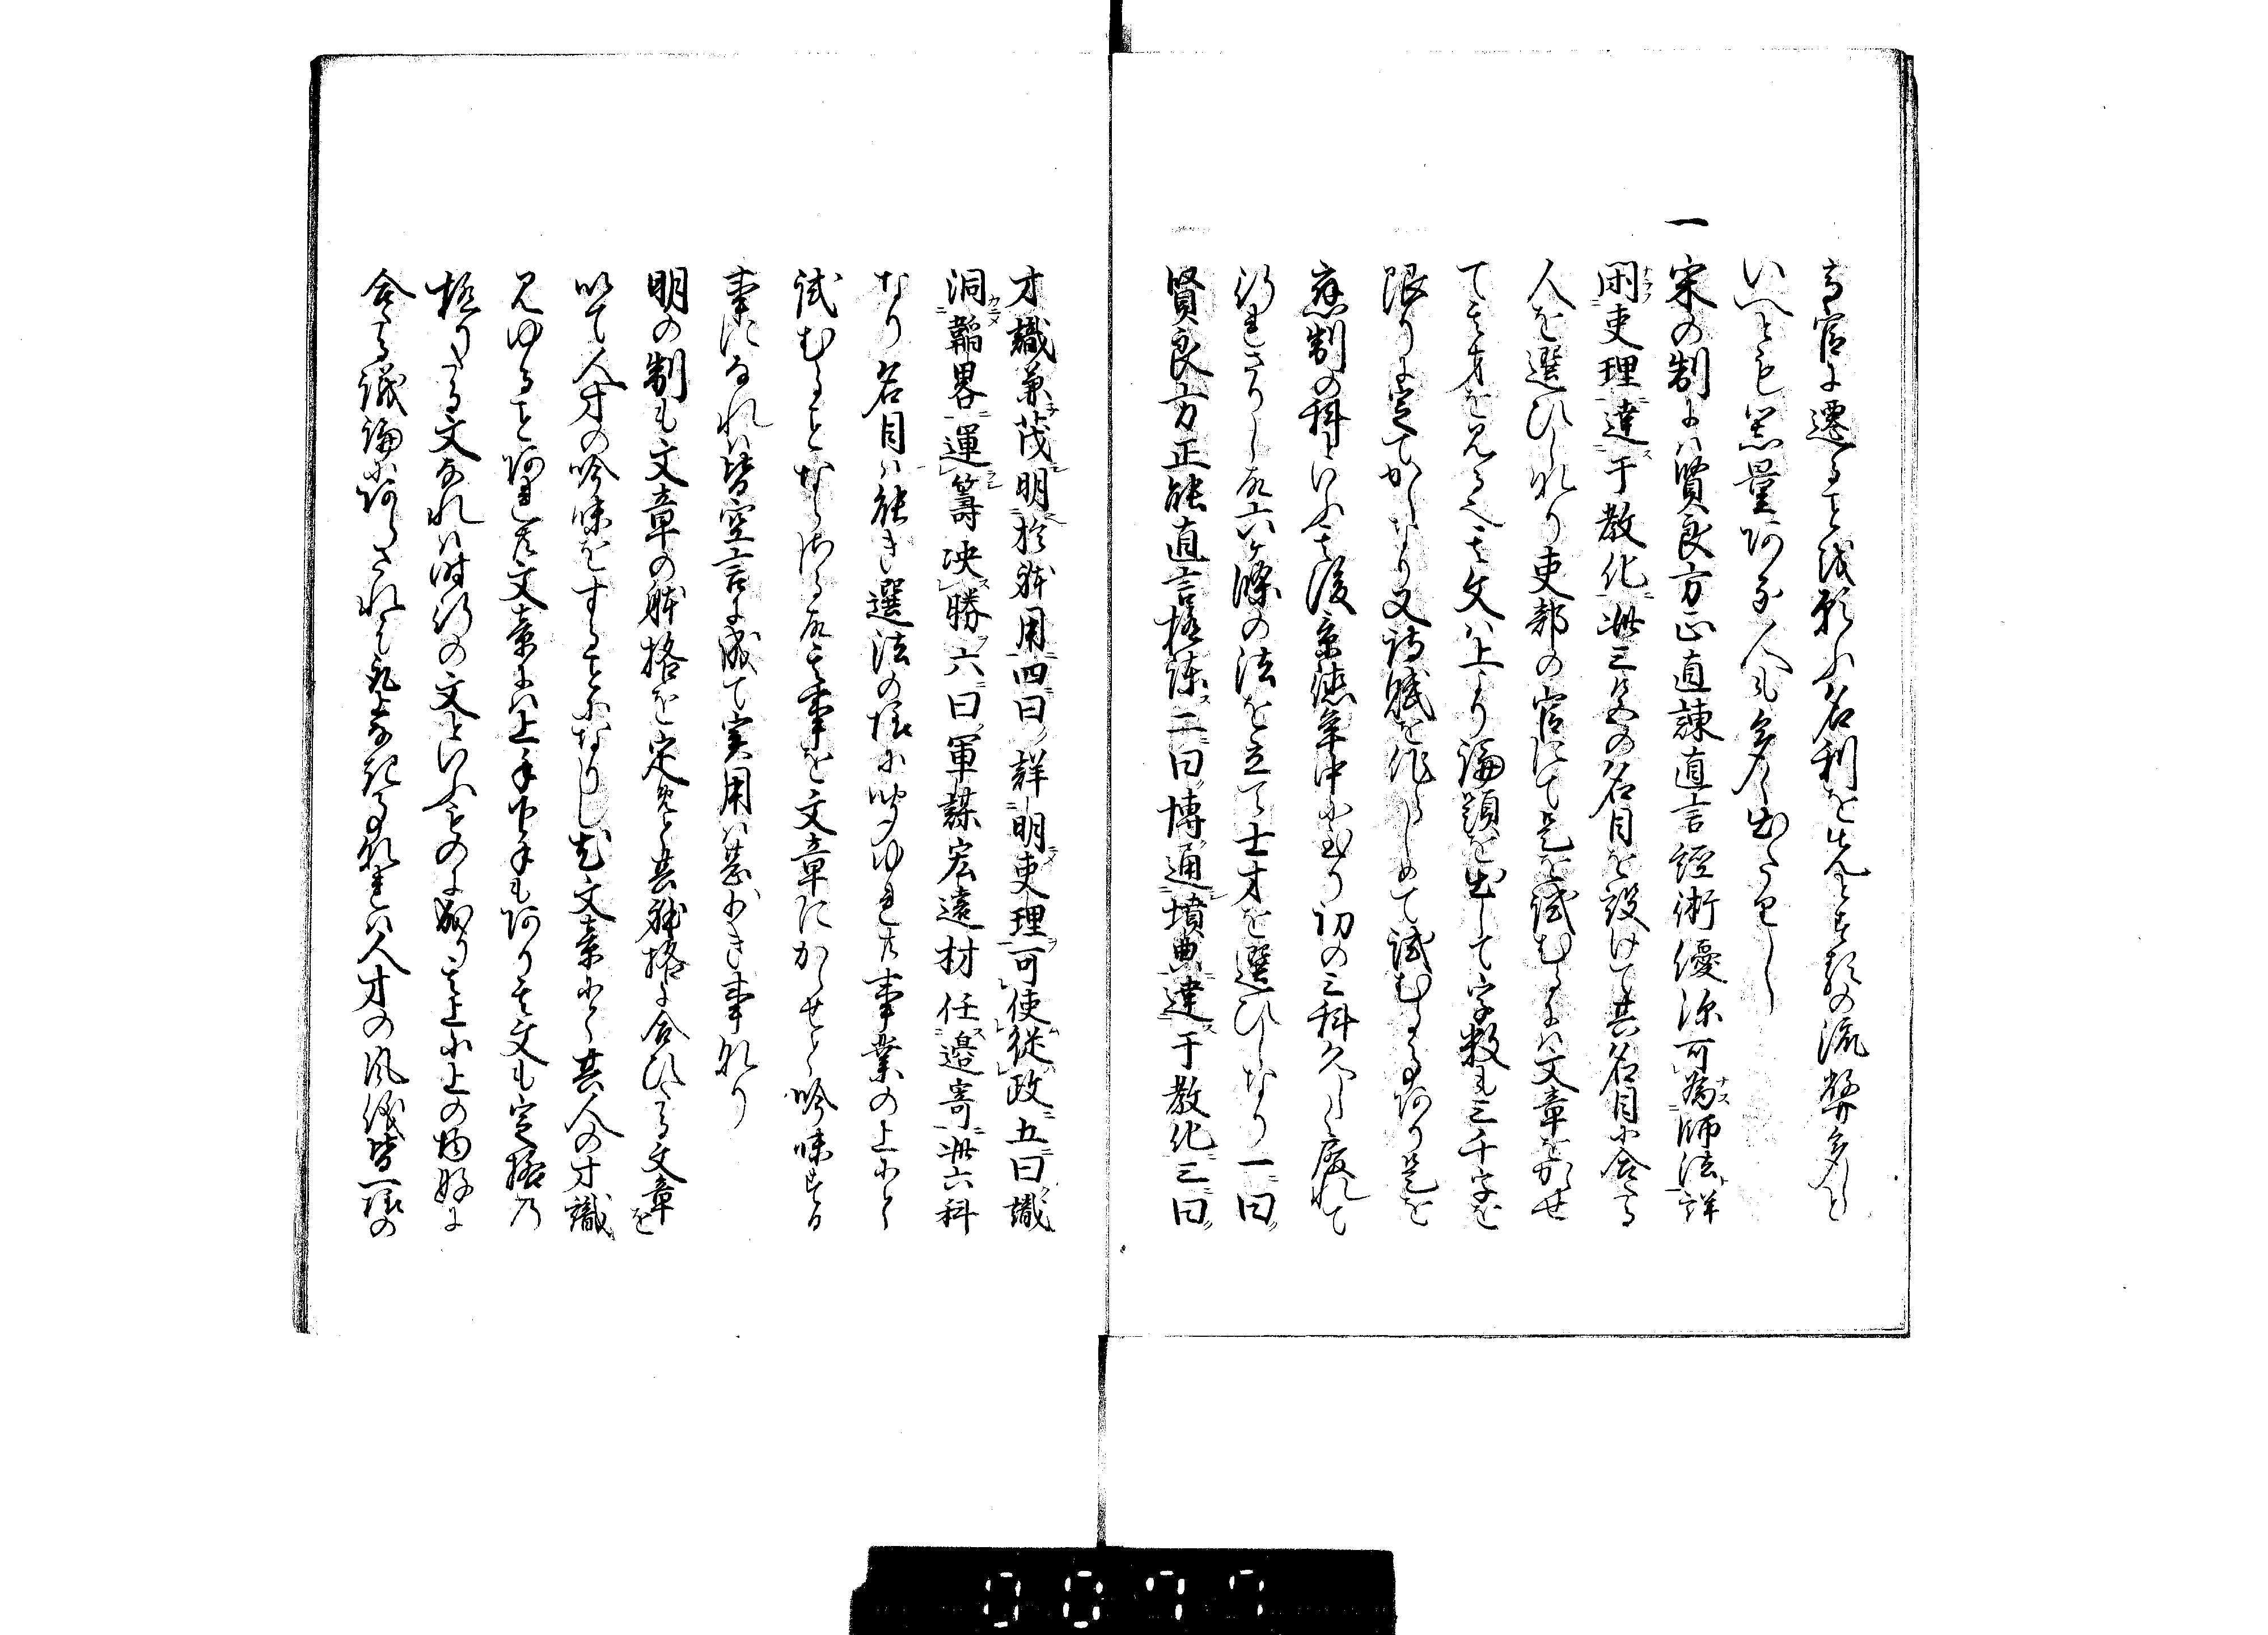 高官に遷ることを願ふ名利を先とする類の流弊多しと
いへとも器量ある人も多く出たるよし
一宋の制には賢良方正直諫直言経術優深可為師法詳
閑吏理達于教化此三色の名目を設けて其名目に合たる
人を選ひしなり吏部の官にて是を試むるには文章をかかせ
て其才を見る也其文は上より論題を出して字数も三千字を
限りに定てかくなり又詩賦を作らしめて試むる事あり是を
應制の科といふ其後景徳年中に至り初の三科久しく廃れて
行れさりし故六ケ條の法を立て士才を選ひしなり一曰
賢良方正能直言極諫二曰博通墳典達于教化三曰
才識兼茂明於躰用四曰詳明吏理可使従政五曰識
洞韜畧運籌决勝六曰軍謀宏遠材任邉寄此六科
なり名目は能き選法の様に聞ゆれ共事業の上にて
試むることならさる故其事を文章にかかせて吟味する
事になれは皆空言に成て実用は甚少き事なり
明の制も文章の躰格を定めて其躰格に合ひたる文章を
以て人才の吟味をすることになりし尤文章にて其人の才識
見ゆることあれ共文章には上手下手もあり其文も定格の
極りたる文なれは時行の文といふものに成り其上に上の物好に
合たる議論にあらされは取上けさる故其比は人才の風儀皆一様の